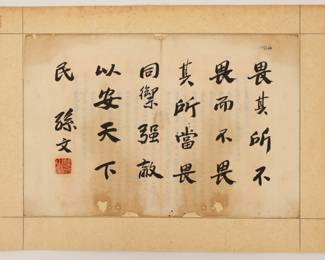 畏其所不
畏而不畏
其所當畏
同禦强敵
以安天下
民 孫文